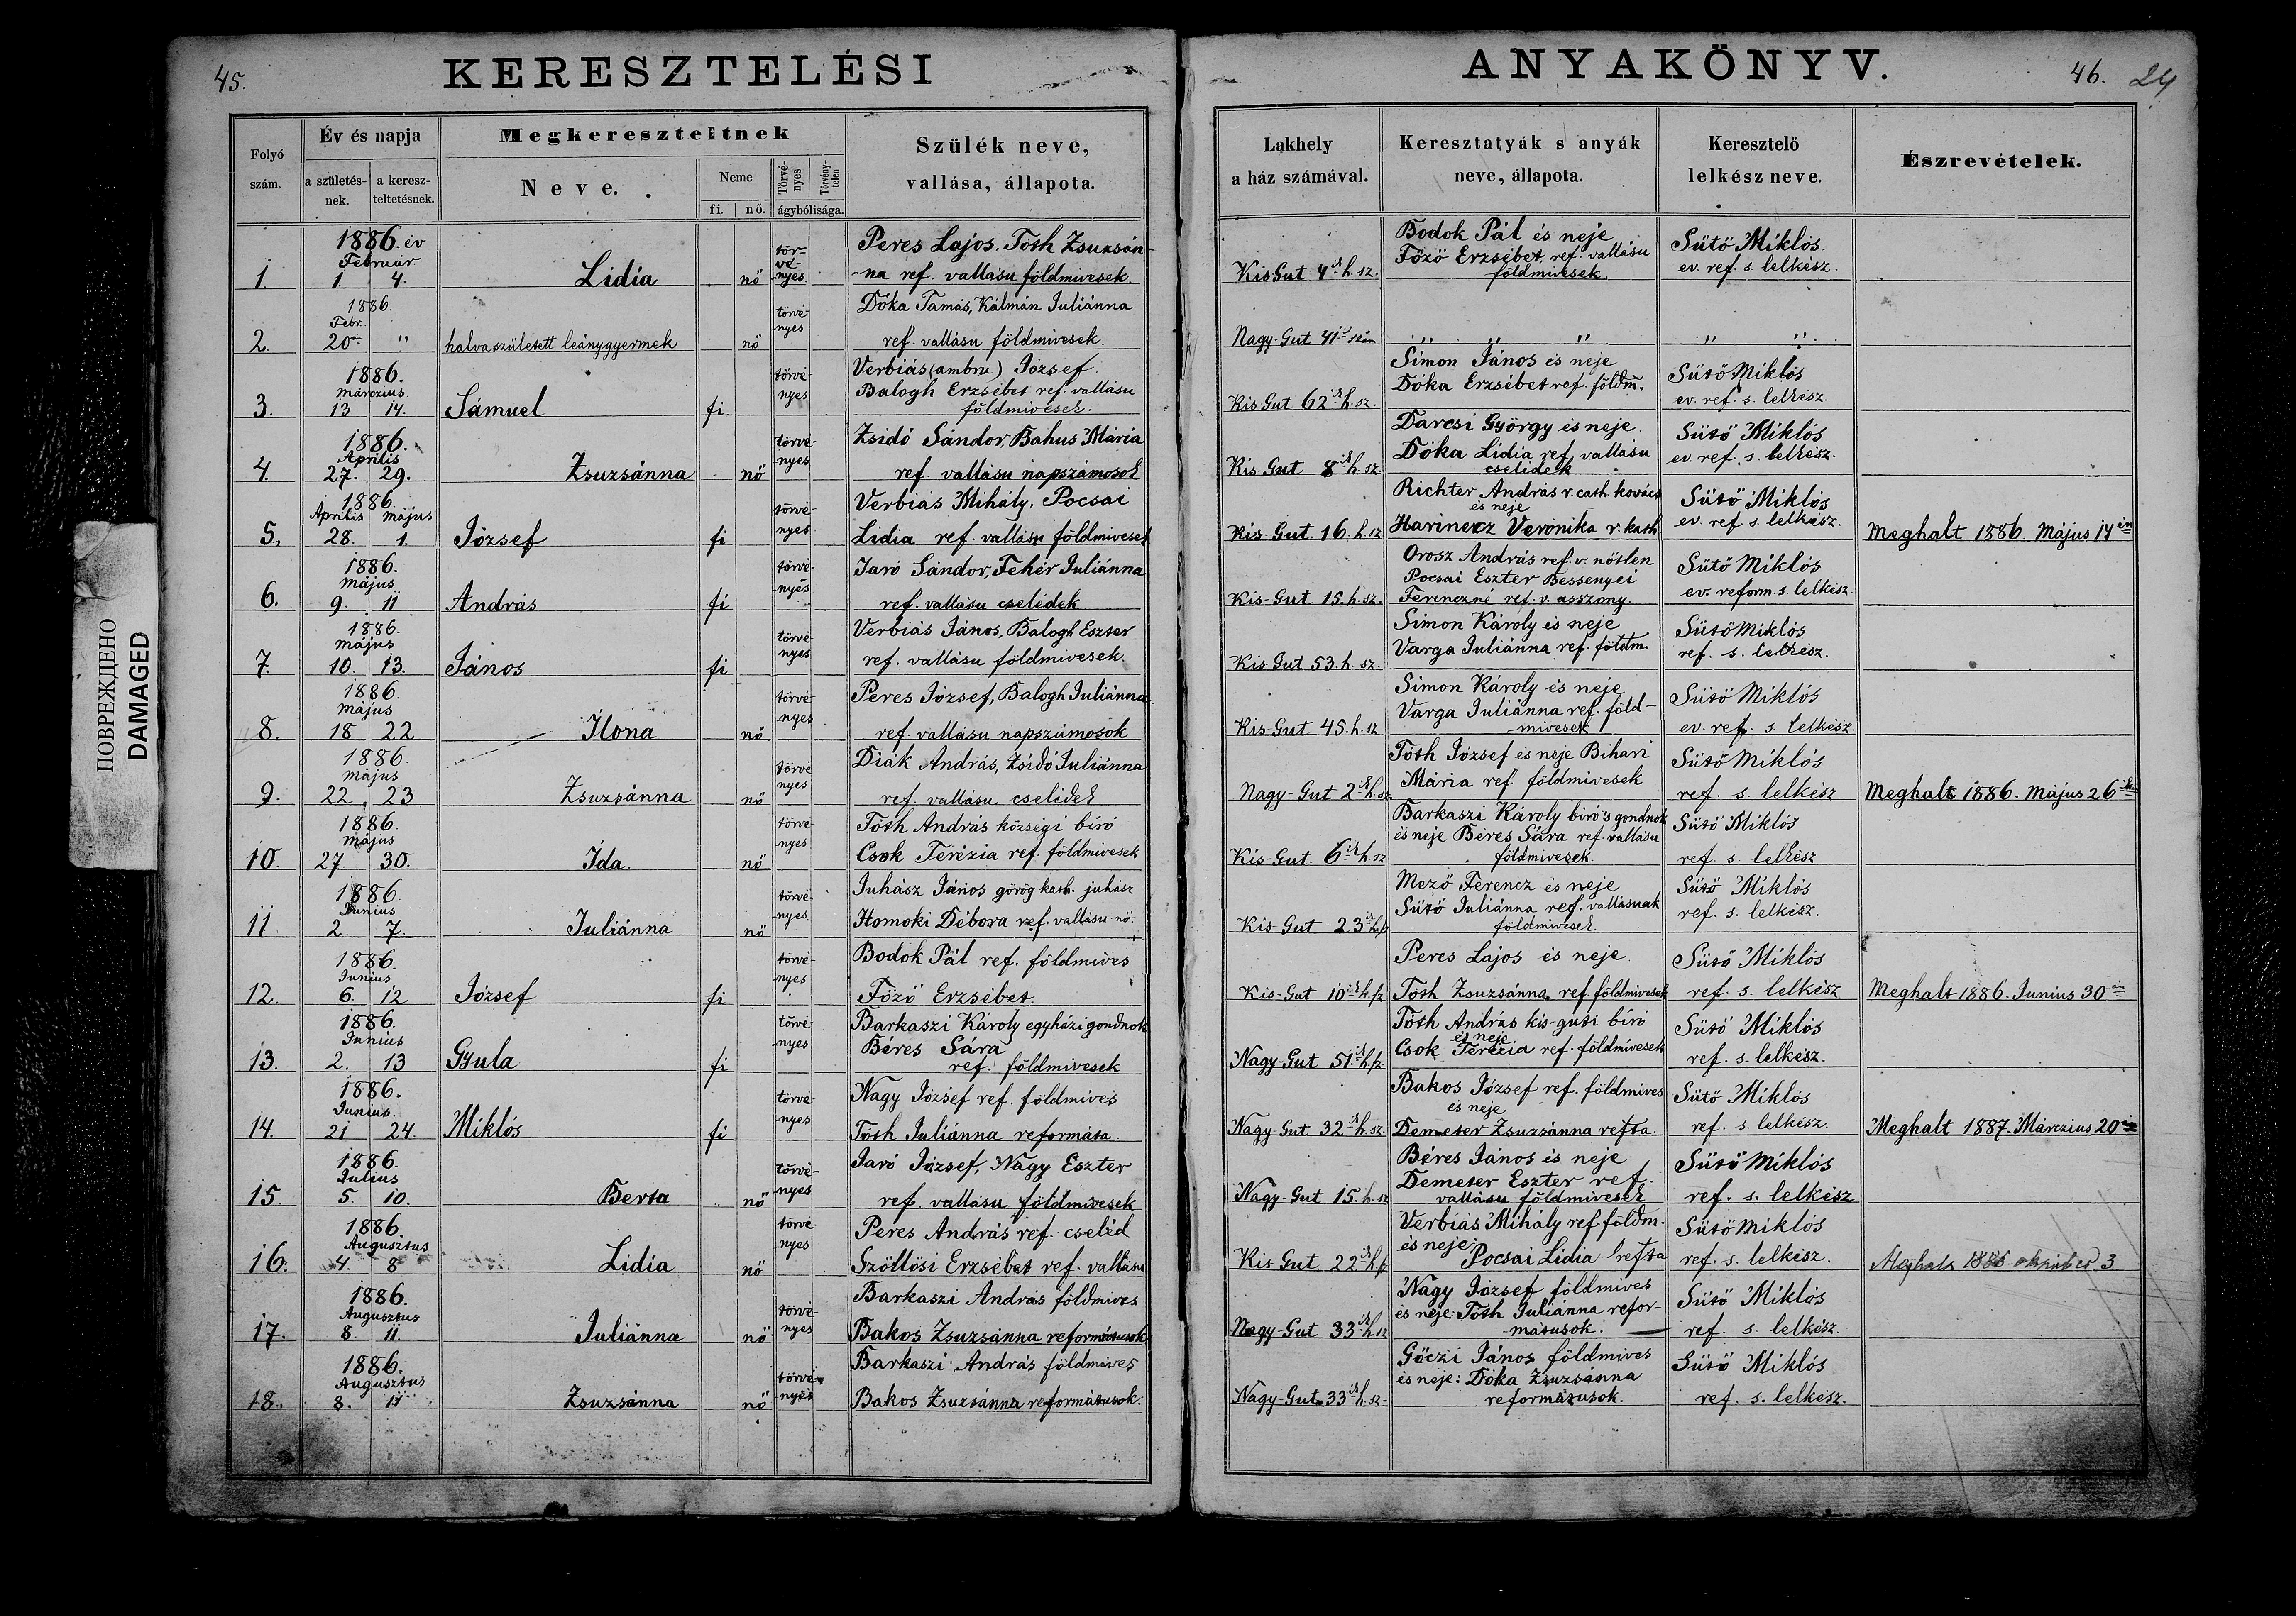 45.
KERESZTELÉSI
Folyó szám.
Év és napja
a születés-nek.
a keresz-teltetésnek.
Megkereszteltnek
Neve.
Neme
fi. nő.
Törvé-nyes
Törvény-telen
ágybólisága.
Szülék neve,
vallása, állapota.
ANYAKÖNYV.
46. 24
Lakhely
a ház számával.
Keresztatyák s anyák
neve, állapota.
Keresztelö
lelkész neve.
Észrevételek.
1. 1886. év Február 1. 4. Lidia nő tör-vé-nyes
Peres Lajos. Tóth Zsuzsán-
-na ref. vallásu földmivesek.
Kis Gut 4ik h. sz.
Bodok Pál és neje
Főző Erzsébet, ref. vallásu
földmivesek.
Sütő Miklós.
ev. ref. s. lelkész.
2. 1886. Febr. 20 " halvaszületett leánygyermek nő törvé-nyes
Dóka Tamás, Kálmán Juliánna
ref. vallásu földmivesek.
Nagy-Gut 41 szám
" " "
" "
3. 1886. Márczius. 13 14. Sámuel fi törvé-nyes
Verbiás (ambru) József.
Balogh Erzsébet ref. vallásu
földmivesek.
Kis Gut 62ik h. sz.
Simon János és neje
Dóka Erzsébet ref. földm.
Sütő Miklós
ev. ref. s. lelkész.
4. 1886. Április 27. 29. Zsuzsánna nő törvé-nyes
Zsidó Sándor, Bahus Mária
ref. vallásu napszámosok
Kis-Gut 8ik h. sz.
Darcsi György és neje.
Dóka Lidia ref. vallásu
cselédek
Sütő Miklós
ev. ref. s. lelkész.
5. 1886. Április Május 28. 1. József fi törvé-nyes
Verbiás Mihály, Pocsai
Lidia ref. vallásu földmivesek
Kis-Gut. 16. h. sz
Richter András r. cath. kovács
és neje
Harinecz Veronika r. kath
Sütő Miklós
ev. ref s. lelkész.
Meghalt 1886. Május 14én
6. 1886. Május 9. 11 András fi törvé-nyes
Jaró Sándor, Fehér Juliánna
ref. vallásu cselédek
Kis-Gut 15. h. sz.
Orosz András ref. v. nőtlen
Pocsai Eszter Bessenyei
Ferenczné ref. v. asszony.
Sütő Miklós
ev. reform. s. lelkész.
7. 1886. Május 10. 13. János fi törvé-nyes
Verbiás János, Balogh Eszter
ref. vallásu földmivesek.
Kis Gut 53. h. sz.
Simon Károly és neje
Varga Juliánna ref. földm.
Sütő Miklós
ref. s. lelkész.
8. 1886. Május 18 22 Ilona nő törvé-nyes
Peres József, Balogh Juliánna
ref. vallásu napszámosok
Kis-Gut 45. h. sz
Simon Károly és neje
Varga Juliánna ref. föld-
-mivesek
Sütő Miklós
ev. ref. s. lelkész.
9. 1886. Május 22. 23 Zsuzsánna nő törvé nyes
Diák András, Zsidó Juliánna
ref. vallásu cselédek
Nagy-Gut 2ik h. sz.
Tóth József és neje Bihari
Mária ref. földmivesek
Sütő Miklós
ref. s. lelkész
Meghalt 1886. Május 26
10. 1886. Május 27. 30. Ida. nő törvé-nyes
Tóth András községi biró
Csok Terézia ref. földmivesek
Kis-Gut. 6ik h. sz
Barkaszi Károly biró 's gondnok
és neje Béres Sára ref. vallásu
földmivesek.
Sütő Miklós
ref. s. lelkész
11 1886. Junius 2. 7. Juliánna nő törvé-nyes.
Juhász János görög kath. juhász
Homoki Débora ref. vallásu nő.
Kis Gut 23ik h/sz
Mező Ferencz és neje
Sütő Juliánna ref. vallásuak
földmivesek.
Sütő Miklós
ref. s. lelkész.
12. 1886. Junius 6. 12 József fi törvé-nyes
Bodok Pál ref. földmives
Főző Erzsébet.
Kis-Gut 10ik h. sz
Peres Lajos és neje.
Tóth Zsuzsánna ref. földmivesek
Sütő Miklós
ref. s. lelkész
Meghalt 1886. Junius 30
13. 1886. Junius 2. 13 Gyula fi törvé-nyes
Barkaszi Károly egyházi gondnok
Béres Sára
ref. földmivesek
Nagy-Gut 51ik h/sz.
Tóth András kis-guti biró
és neje
Csok Terézia ref. földmivesek
Sütő Miklós
ref. s. lelkész.
14. 1886. Junius. 21 24. Miklós fi törvé-nyes
Nagy József ref. földmives
Tóth Juliánna reformáta.
Nagy-Gut 32ik h. sz.
Bakos József ref. földmives
és neje
Demeter Zsuzsánna refta.
Sütő Miklós
ref. s. lelkész.
Meghalt 1887. Márczius 20
15. 1886. Julius 5. 10. Berta nő törvé-nyes
Jaró József, Nagy Eszter
ref. vallásu földmivesek
Nagy-Gut 15. h. sz
Béres János és neje
Demeter Eszter ref.
vallásu földmivesek
Sütő Miklós
ref. s. lelkész
16. 1886. Augusztus 4. 8 Lidia nő törvé-nyes
Peres András ref. cseléd
Szöllősi Erzsébet ref. vallásu
Kis Gut 22ik h/sz
Verbiás Mihály ref földm.
és neje:
Pocsai Lidia refta
Sütő Miklós
ref. s. lelkész.
Meghalt 1886 október 3.
17. 1886. Augusztus 8. 11. Juliánna nő törvé-nyes
Barkaszi András földmives
Bakos Zsuzsánna reformátusok
Nagy-Gut 33ik h. sz
Nagy József földmives
és neje: Tóth Juliánna refor-
-mátusok.
Sütő Miklós
ref. s. lelkész.
18. 1886. Augusztus 8. 11 Zsuzsánna nő törvé-nyes
Barkaszi András földmives
Bakos Zsuzsánna reformátusok.
Nagy-Gut 33ik h. sz.
Göczi János földmives
és neje: Dóka Zsuzsánna
reformátusok.
Sütő Miklós
ref. s. lelkész.
ПОВРЕЖДЕНО
DAMAGED